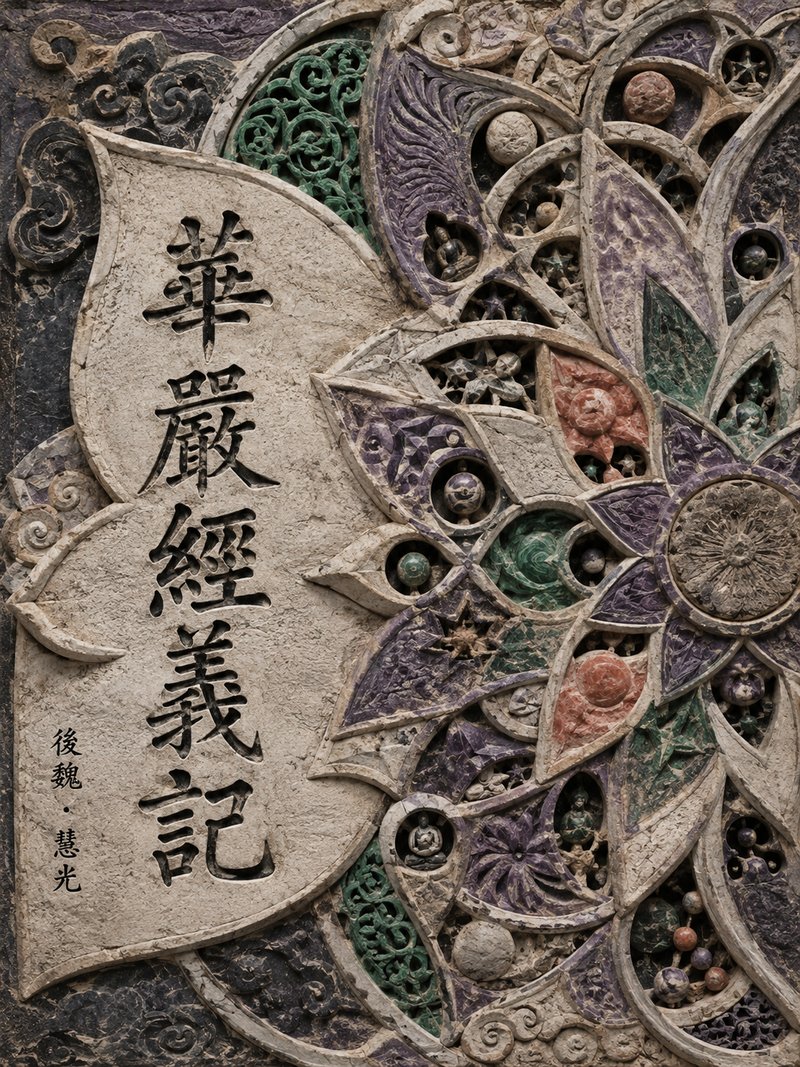 華嚴經義記
後魏・慧光